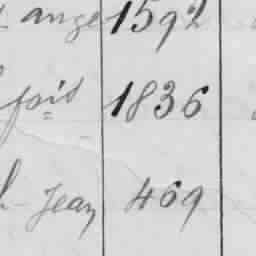 ange 1592
pis 1836
Jean 469